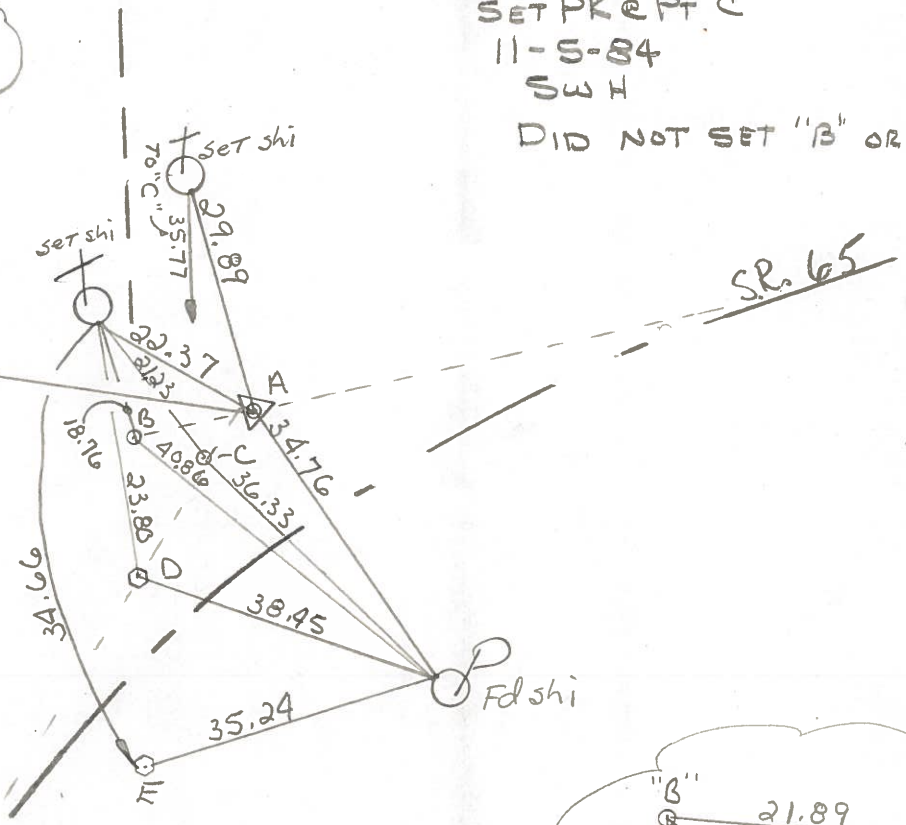 SET PK @ PT C
11-5-84
SWH
DID NOT SET "B" OR
set shi
TO "C"
35.77
29.89
set shi
S.R. 65
22.37
21.23
A
B
18.76
40.86
C
34.76
36.33
23.80
D
34.66
38.45
Fd shi
35.24
E
"B"
21.89